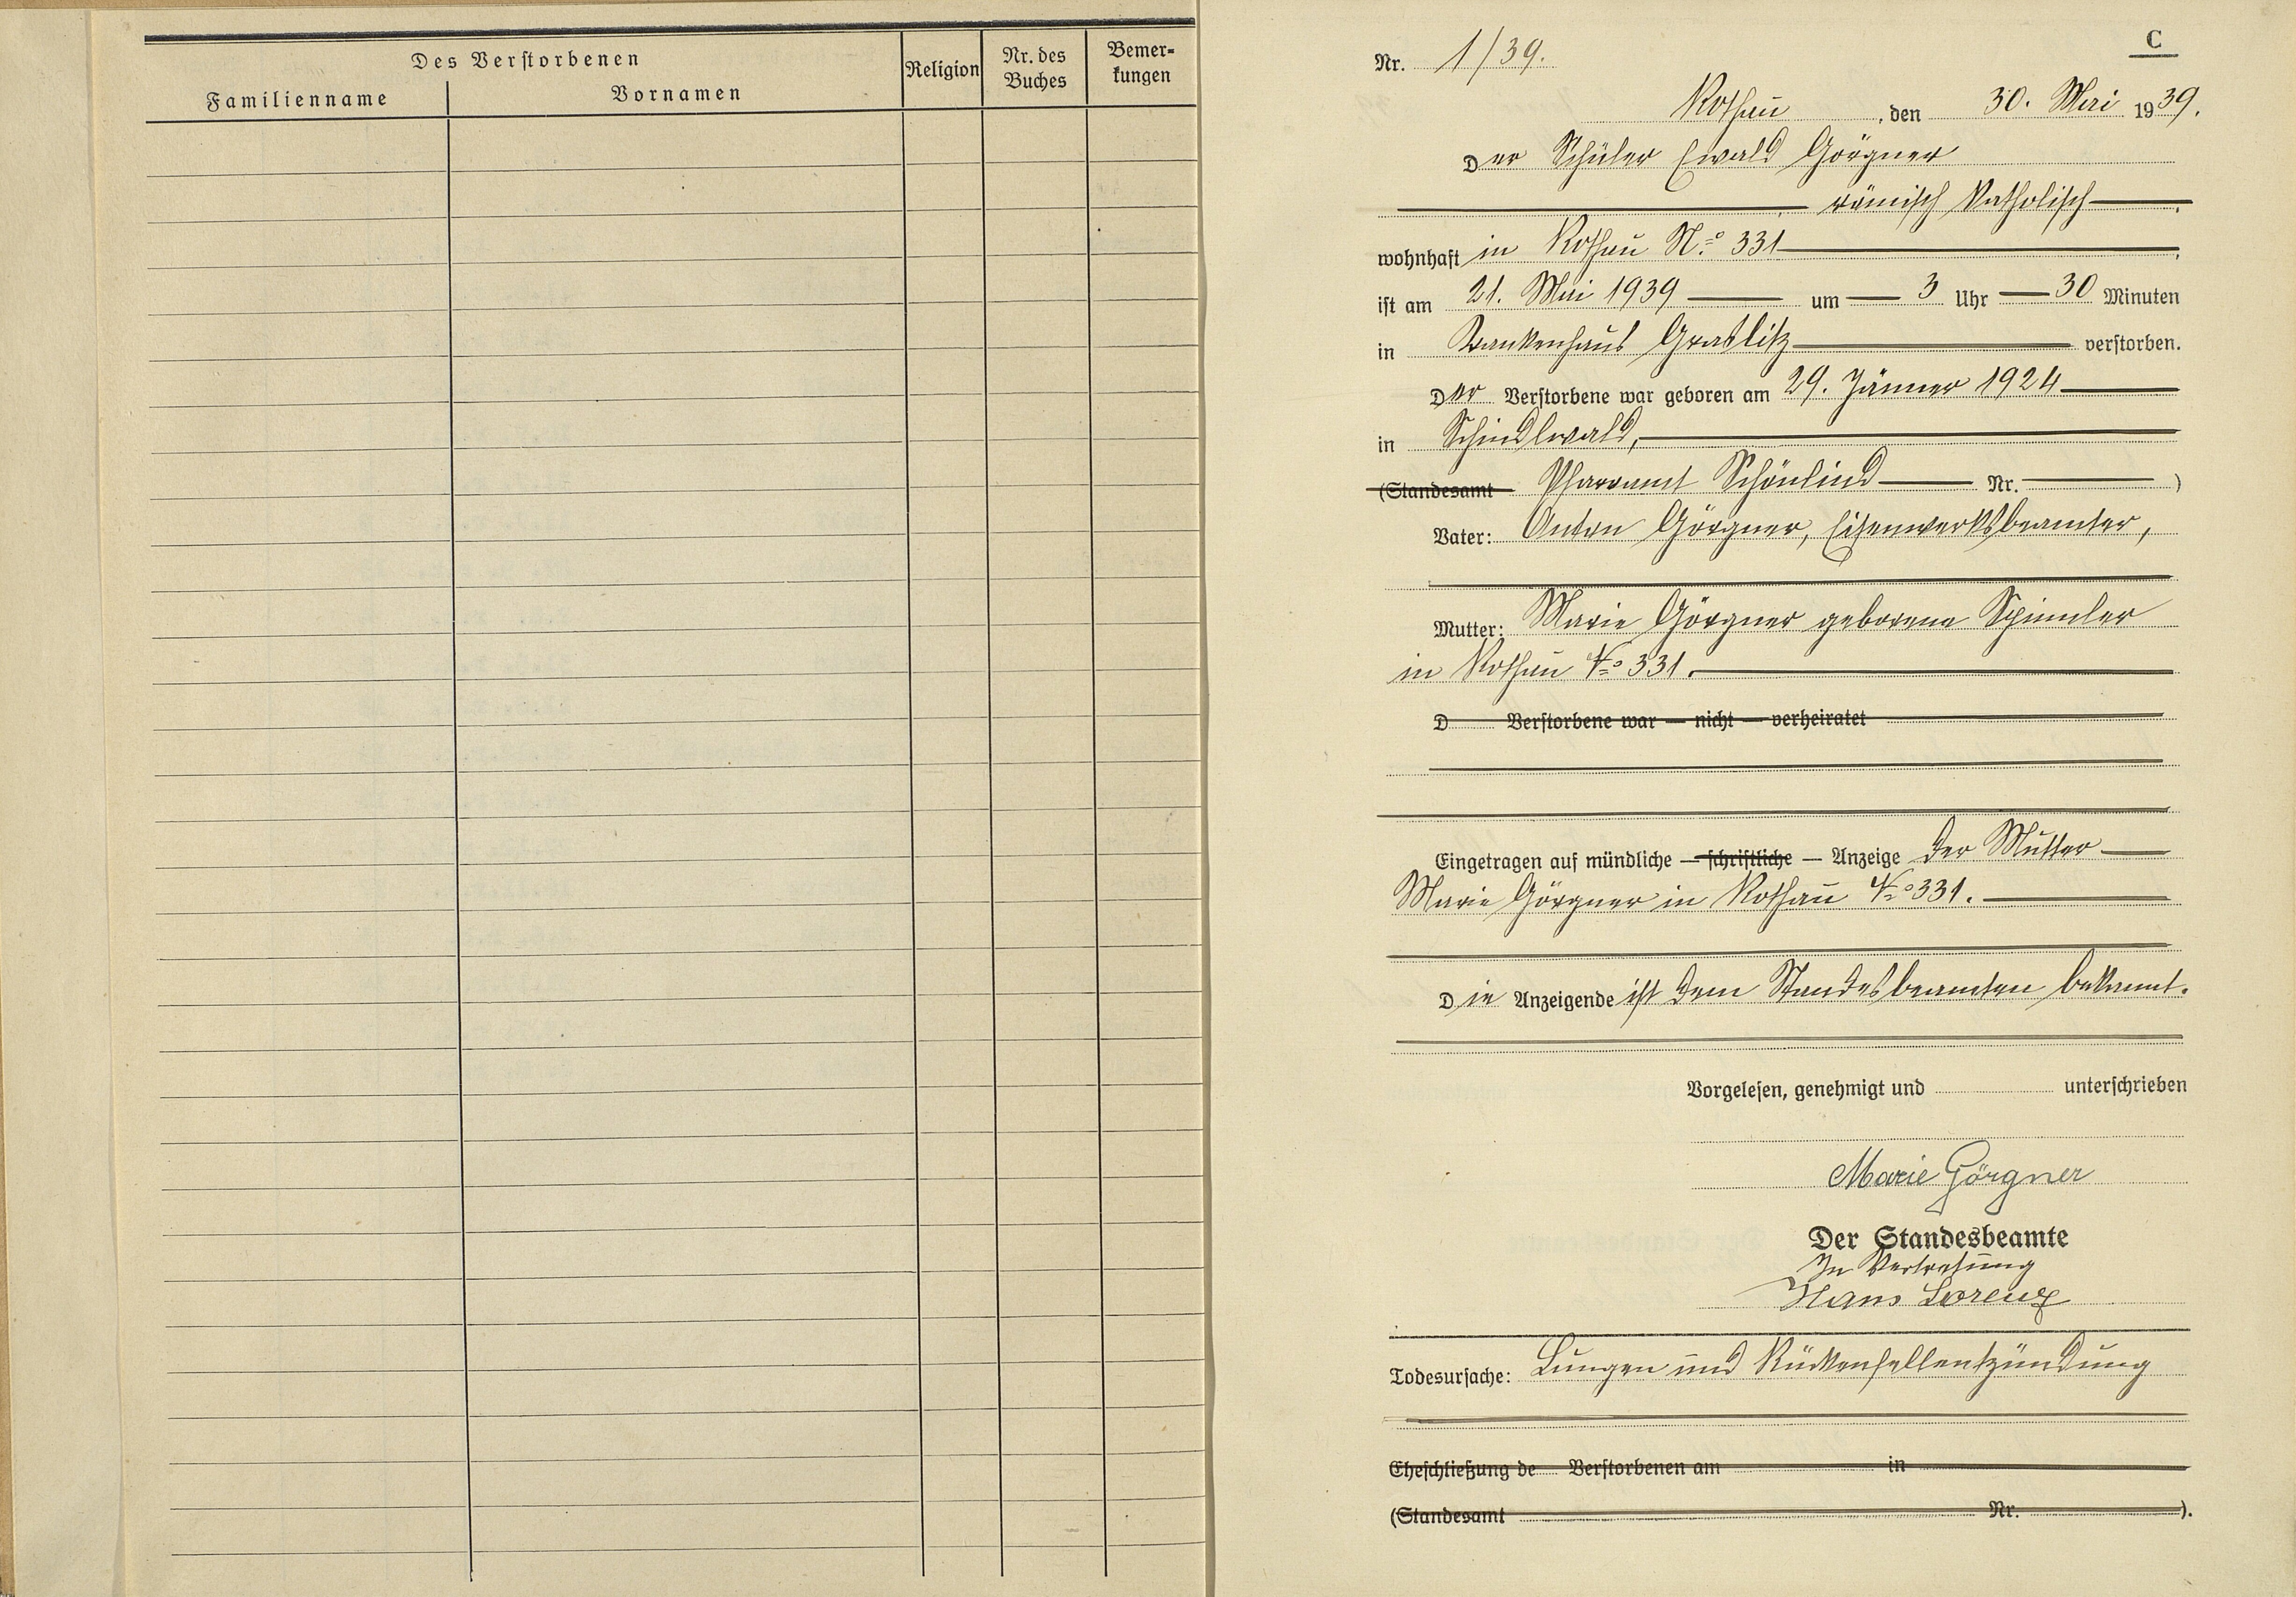 Des Verstorbenen
Familienname
Vornamen
Religion
Nr. des
Buches
Bemer-
kungen
C
Nr. 1/39.
Rothau, den 30. Mai 1939.
Der Schüler Ewald Görgner
römisch katholisch
wohnhaft in Rothau No 331
ist am 21. Mai 1939 um 3 Uhr 30 Minuten
in Krankenhaus Graslitz verstorben.
Der Verstorbene war geboren am 29. Jänner 1924
in Schindlwald,
(Standesamt Pfarramt Schönlind Nr. )
Vater: Anton Görgner, Eisenwerksbeamter,
Mutter: Marie Görgner geborene
in Rothau No 331.
D Verstorbene war — nicht — verheiratet
Eingetragen auf mündliche — schriftliche — Anzeige der Mutter
Marie Görgner in Rothau No 331.
Die Anzeigende ist dem Standesbeamten bekannt.
Vorgelesen, genehmigt und unterschrieben
Marie Görgner
Der Standesbeamte
In Vertretung
Hans Lorenz
Todesursache: Lungen und Rückenfellentzündung
Eheschließung de Verstorbenen am in
(Standesamt Nr. ).